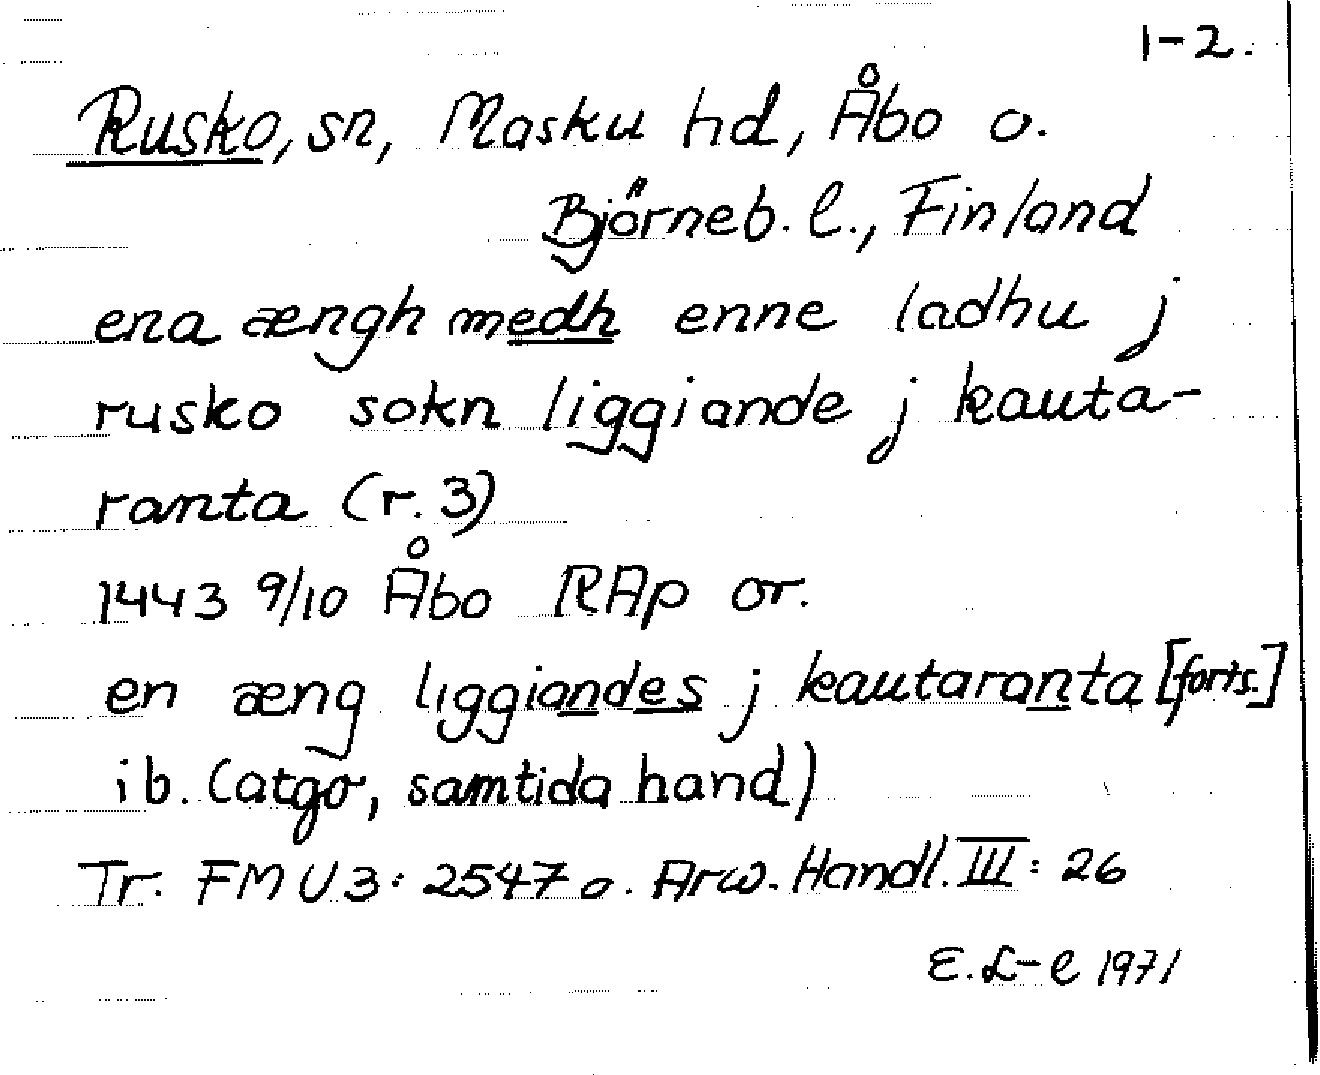 1-2.
Rusko, sn, Masku hd, Åbo o.
Björneb. l., Finland
ena ængh medh enne ladhu j
rusko sokn liggiande j kauta-
ranta (r. 3)
1443 9/10 Åbo RAp or.
en æng liggiandes j kautaranta [forts.]
ib. (atgo, samtida hand)
Tr. FMU 3: 2547 o. Arw. Handl. III: 26
E. L-e 1971